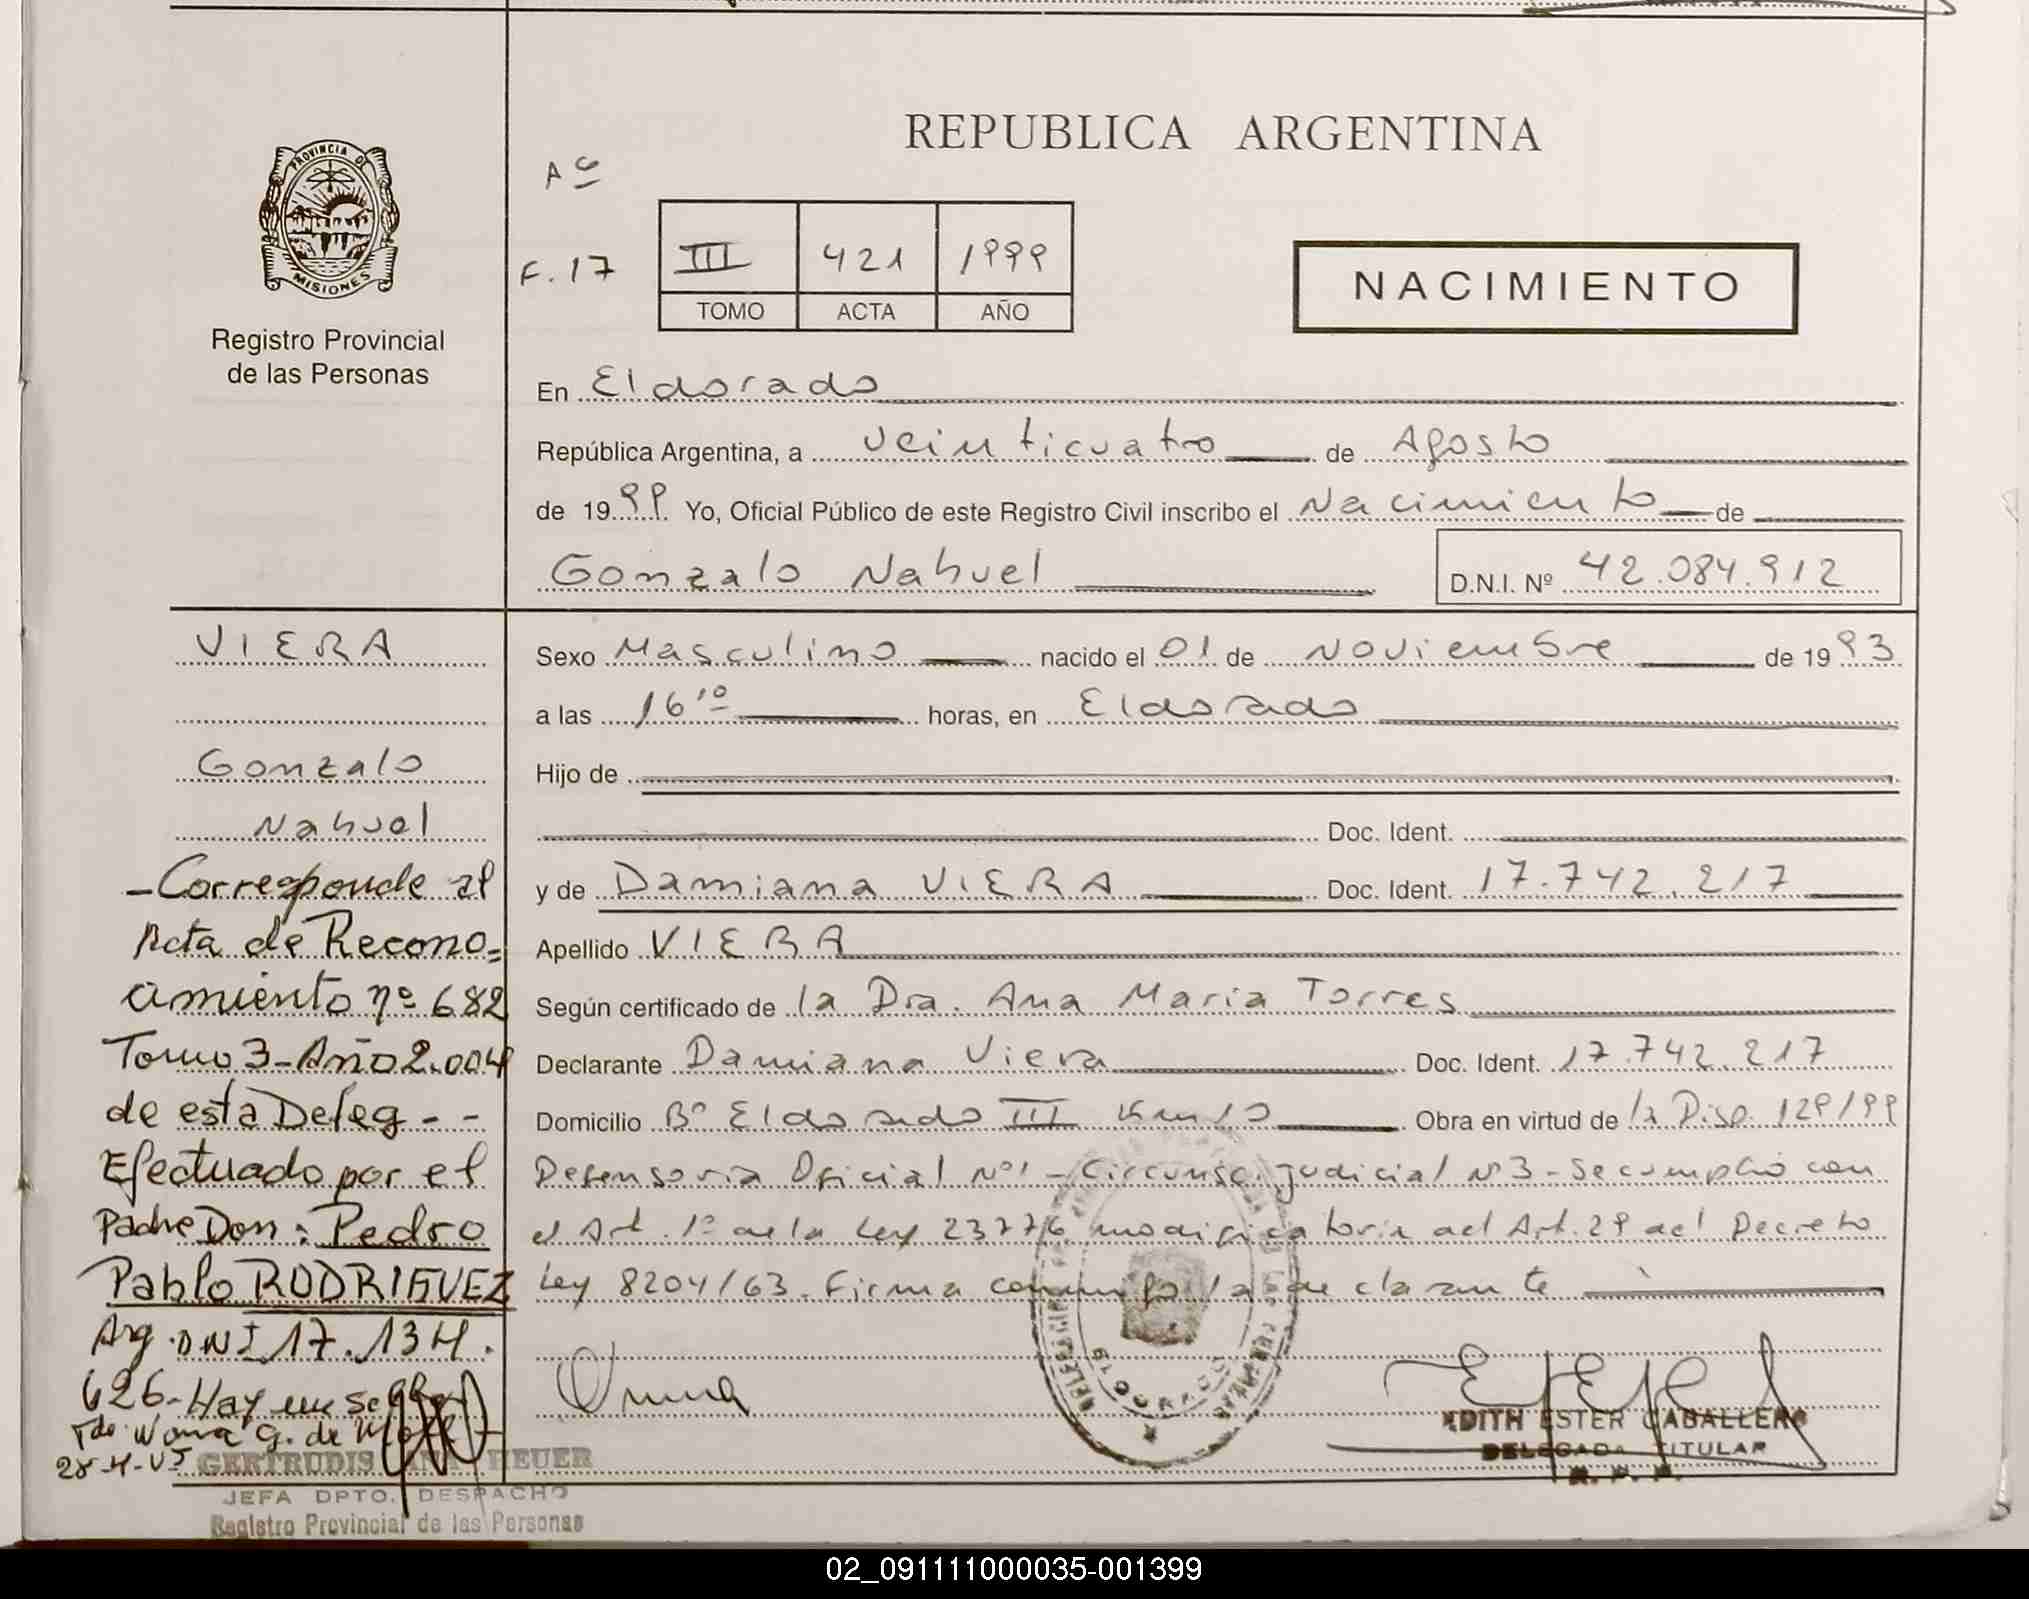 REPUBLICA ARGENTINA
PROVINCIA DE
MISIONES
Registro Provincial
de las Personas
F. 17
III 421 1999
TOMO ACTA AÑO
NACIMIENTO
En Eldorado
República Argentina, a veinticuatro de Agosto
de 1999 Yo, Oficial Público de este Registro Civil inscribo el Nacimiento de
Gonzalo Nahuel D.N.I. Nº 42.084.912
VIERA
Gonzalo
Nahuel
Sexo Masculino nacido el 01 de Noviembre de 1993
a las 16,10 horas, en Eldorado
Hijo de
Doc. Ident.
y de Damiana VIERA Doc. Ident. 17.742.217
Apellido VIERA
Según certificado de la Dra. Ana Maria Torres
Declarante Damiana Viera Doc. Ident. 17.742.217
Domicilio Bº Eldorado III Km 10 Obra en virtud de la Disp. 129/99
Defensoria Oficial Nº1 - Circunsc. judicial Nº3 - Se cumplió con
el Art. 1º de la Ley 23776 modificatoria del Art. 29 del Decreto
Ley 8204/63. Firma conmigo la declarante
- Corresponde al
Acta de Recono=
cimiento nº 682
Tomo 3 - Año 2.004
de esta Deleg - -
Efectuado por el
Padre Don: Pedro
Pablo RODRIGUEZ
Arg. DNI 17.134.
626 - Hay un sello
EDITH ESTER CABALLERO
DELEGADA TITULAR
R. P. P.
GERTRUDIS HEUER
JEFA DPTO. DESPACHO
Registro Provincial de las Personas
02_091111000035-001399